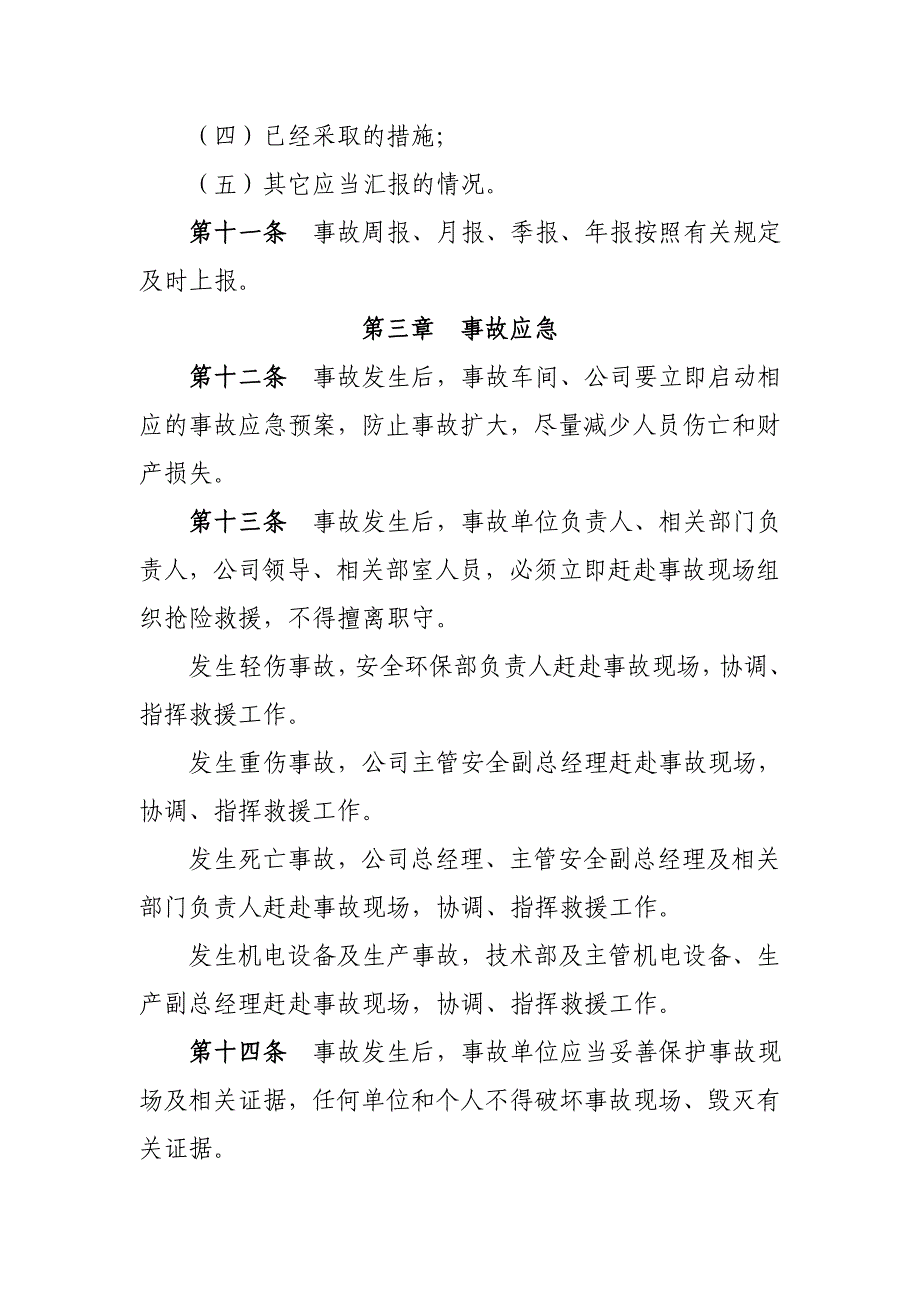 （四）已经采取的措施；
（五）其它应当汇报的情况。
第十一条　事故周报、月报、季报、年报按照有关规定
及时上报。
第三章　事故应急
第十二条　事故发生后，事故车间、公司要立即启动相
应的事故应急预案，防止事故扩大，尽量减少人员伤亡和财
产损失。
第十三条　事故发生后，事故单位负责人、相关部门负
责人，公司领导、相关部室人员，必须立即赶赴事故现场组
织抢险救援，不得擅离职守。
发生轻伤事故，安全环保部负责人赶赴事故现场，协调、
指挥救援工作。
发生重伤事故，公司主管安全副总经理赶赴事故现场，
协调、指挥救援工作。
发生死亡事故，公司总经理、主管安全副总经理及相关
部门负责人赶赴事故现场，协调、指挥救援工作。
发生机电设备及生产事故，技术部及主管机电设备、生
产副总经理赶赴事故现场，协调、指挥救援工作。
第十四条　事故发生后，事故单位应当妥善保护事故现
场及相关证据，任何单位和个人不得破坏事故现场、毁灭有
关证据。